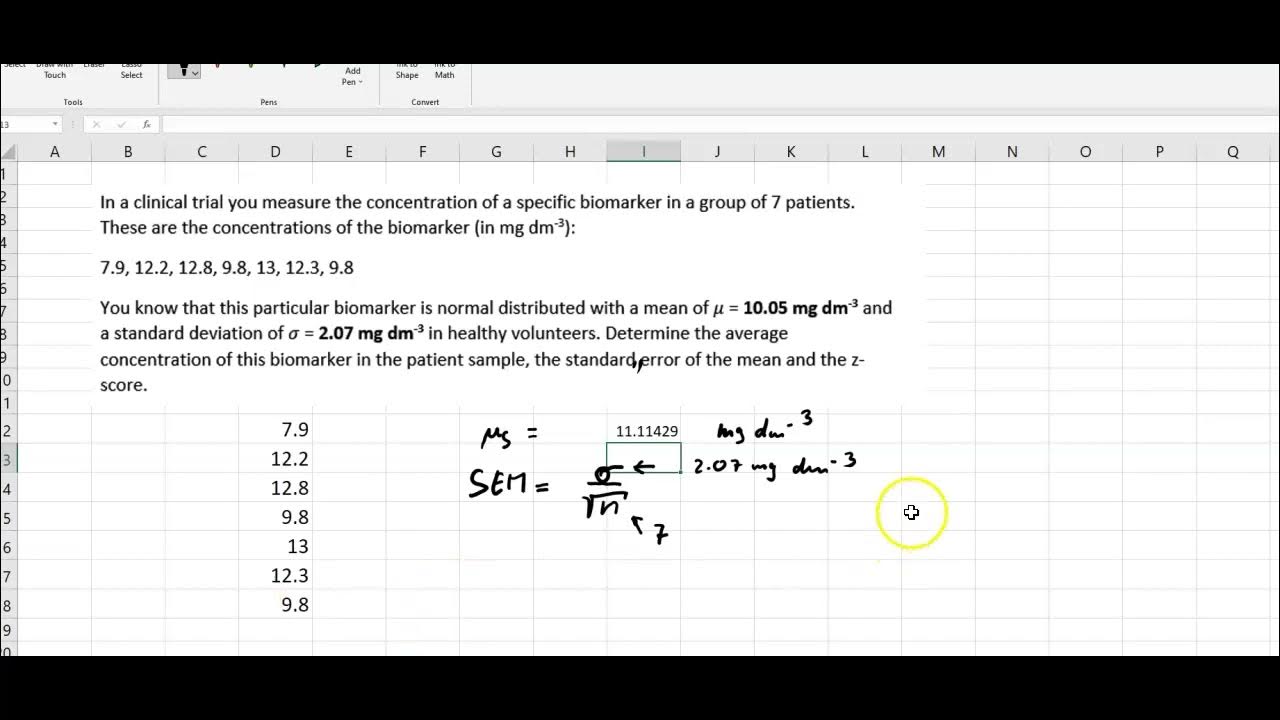 Select Draw with Eraser Lasso Ink to Ink to
Touch Select Add Shape Math
Pen
Tools Pens Convert
13 fx
A B C D E F G H I J K L M N O P Q
1
2
In a clinical trial you measure the concentration of a specific biomarker in a group of 7 patients.
3
These are the concentrations of the biomarker (in mg dm⁻³):
4
5
7.9, 12.2, 12.8, 9.8, 13, 12.3, 9.8
6
7
You know that this particular biomarker is normal distributed with a mean of μ = 10.05 mg dm⁻³ and
8
a standard deviation of σ = 2.07 mg dm⁻³ in healthy volunteers. Determine the average
9
concentration of this biomarker in the patient sample, the standard error of the mean and the z-
0
score.
1
2 7.9 μs = 11.11429 mg dm⁻³
3 12.2 2.07 mg dm⁻³
4 12.8 SEM = σ/√n
5 9.8 7
6 13
7 12.3
8 9.8
9
0